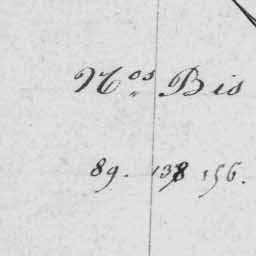 Nos Bis
89. 138 156.